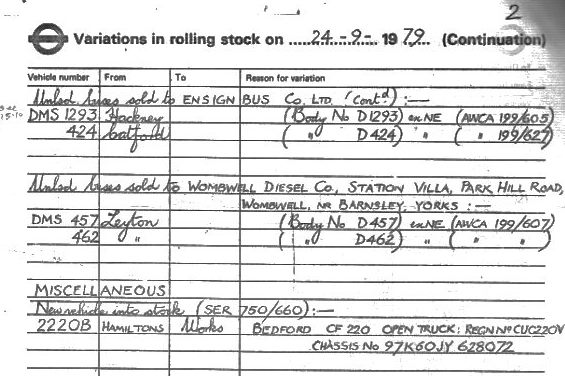 2
Variations in rolling stock on 24-9-1979. (Continuation)
Vehicle number From To Reason for variation
Unlic'd. buses sold to ENSIGN BUS Co, LTD. (cont'd) :—
DMS 1293 Hackney (Body No D1293) ex NE (AWCA 199/605)
424 Catford ( " D424) " ( " 199/627)
Unlic'd buses sold to WOMBWELL DIESEL Co., STATION VILLA, PARK HILL ROAD,
WOMBWELL, NR BARNSLEY, YORKS :—
DMS 457 Leyton (Body No D457) ex NE (AWCA 199/607)
462 " ( " D462) " ( " " )
MISCELLANEOUS
New vehicle into stock (SER 750/660):—
2220B HAMILTONS Works BEDFORD CF 220 OPEN TRUCK: REGN No CUC220V
CHASSIS No 97K60JY 628072